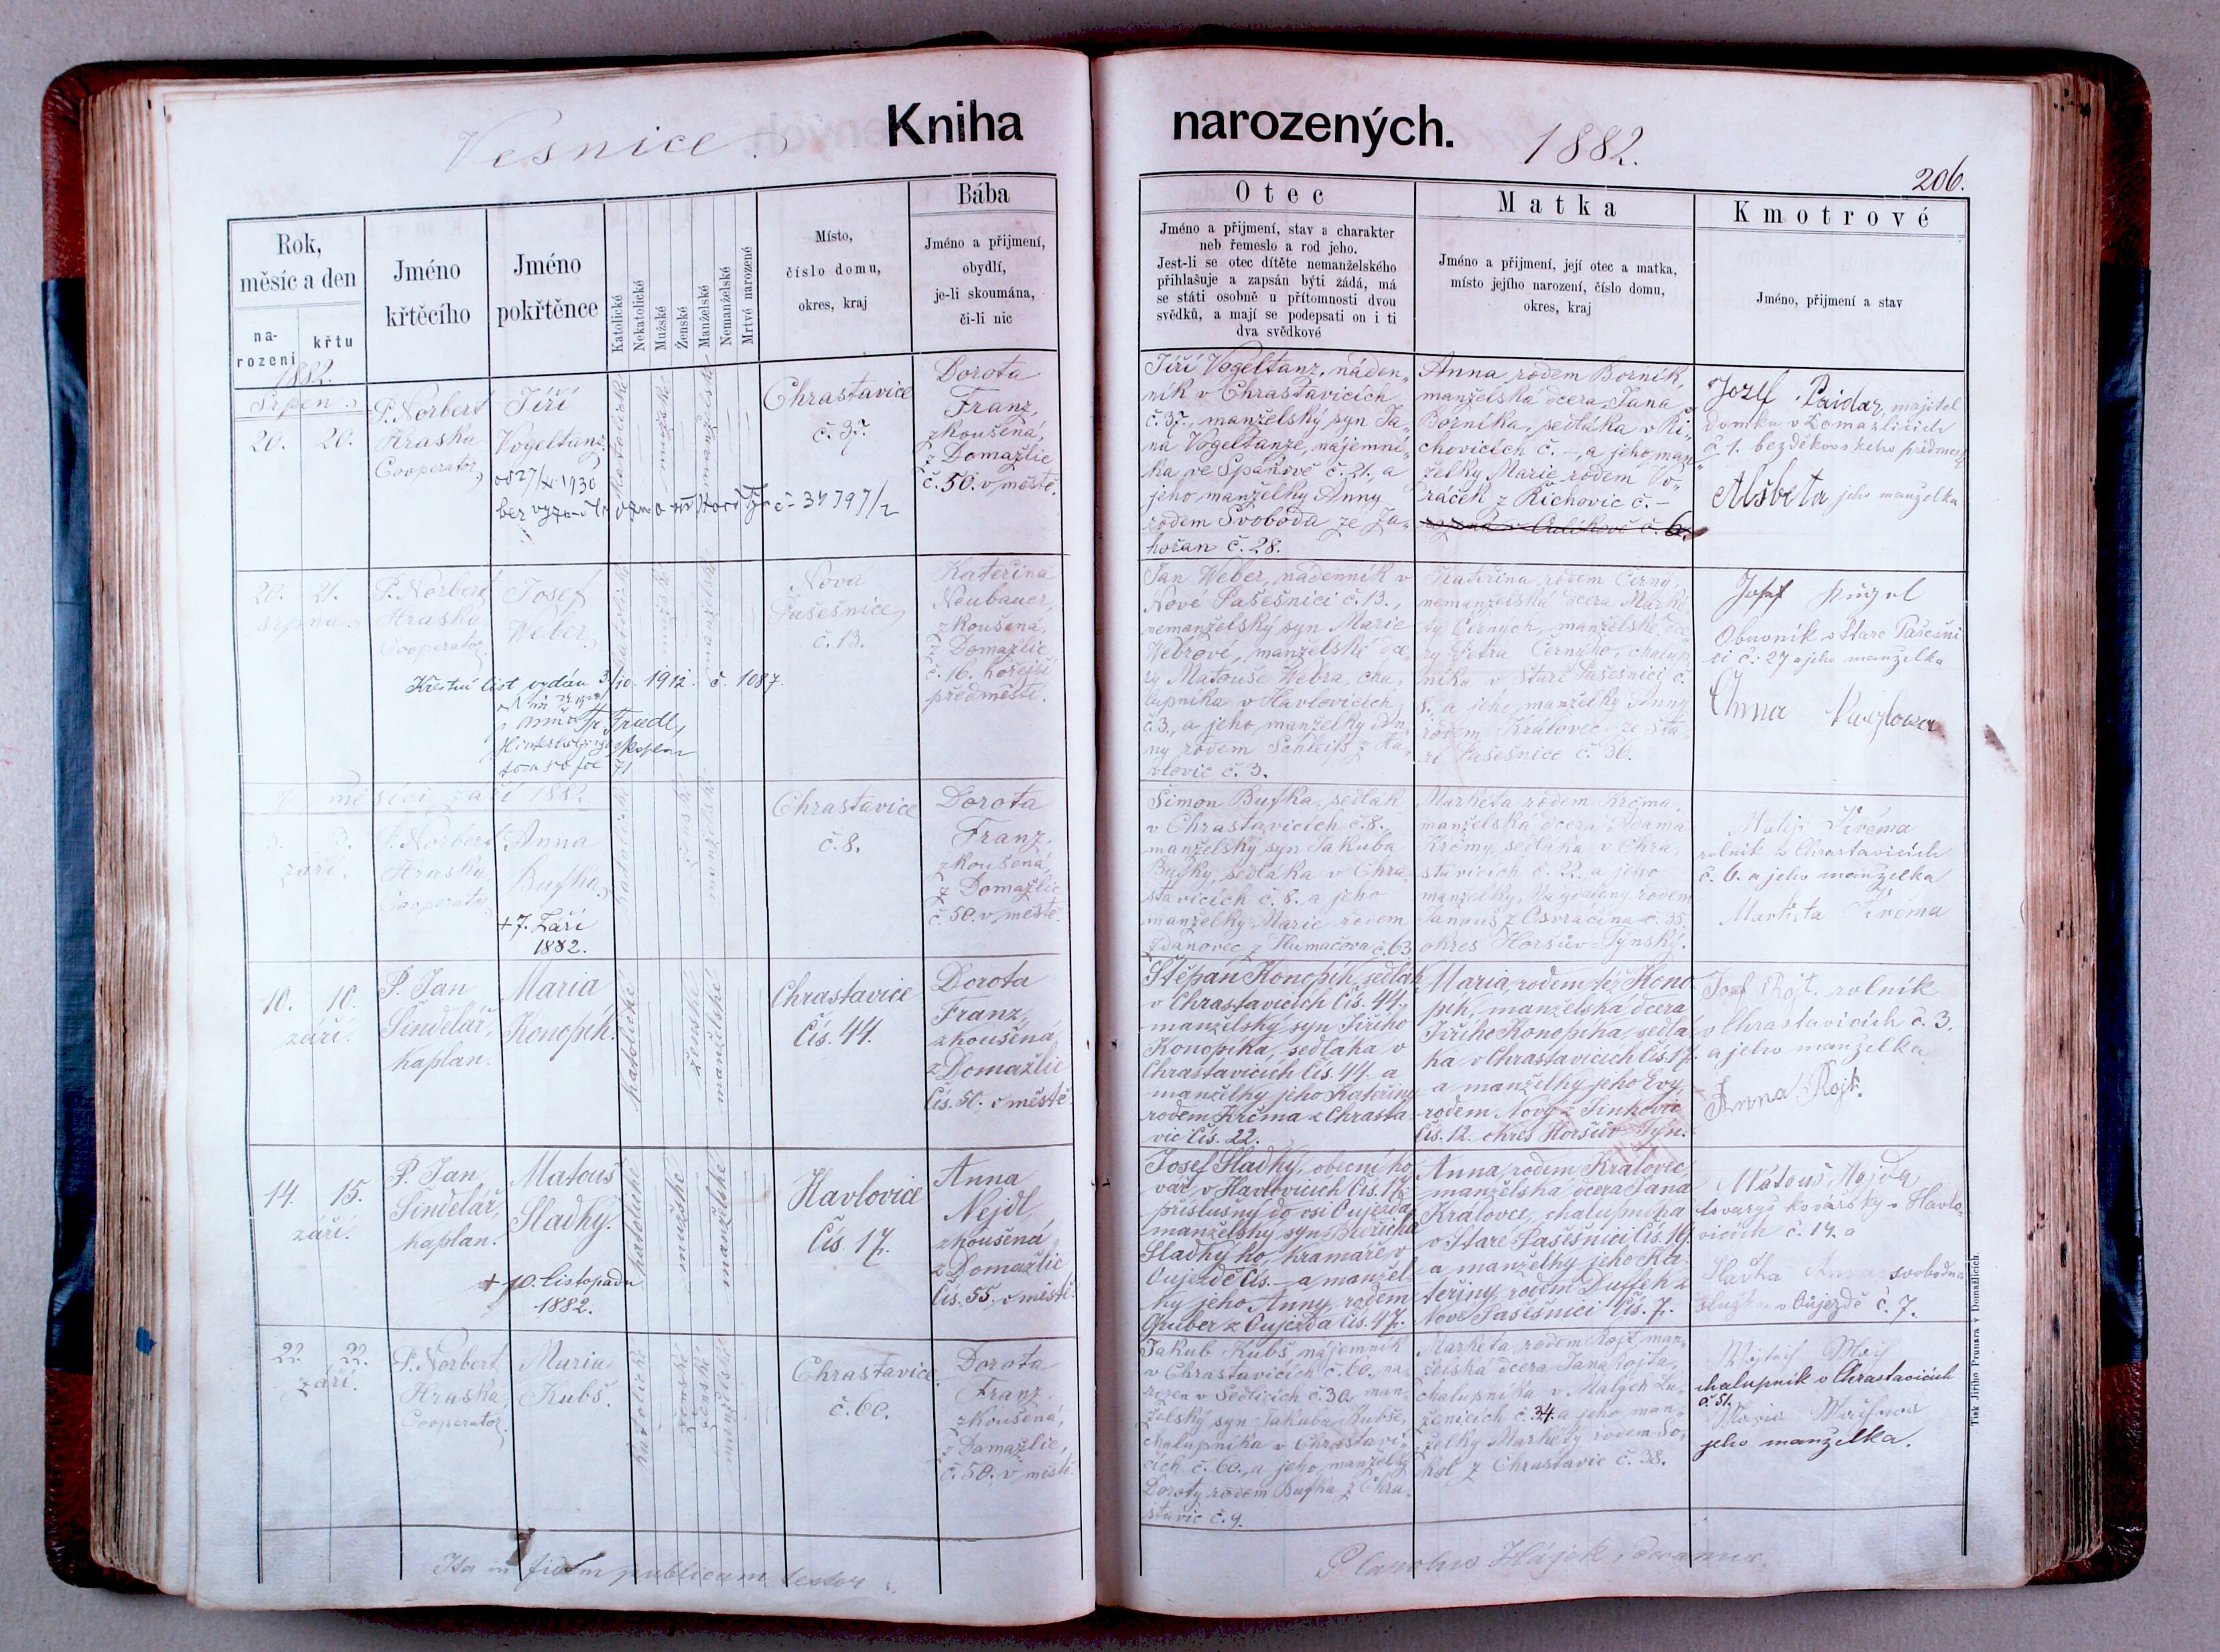 Vesnice.
Kniha
narozených.
1882.
206.
Rok,
měsíc a den
na-
rození
křtu
Jméno
křtěcího
Jméno
pokřtěnce
Katolické
Nekatolické
Mužské
Ženské
Manželské
Nemanželské
Mrtvé narozené
Místo,
číslo domu,
okres, kraj
Bába
Jméno a přijmení,
obydlí,
je-li skoumána,
či-li nic
Otec
Jméno a přijmení, stav a charakter
neb řemeslo a rod jeho.
Jest-li se otec dítěte nemanželského
přihlašuje a zapsán býti žádá, má
se státi osobně u přítomnosti dvou
svědků, a mají se podepsati on i ti
dva svědkové
Matka
Jméno a přijmení, její otec a matka,
místo jejího narození, číslo domu,
okres, kraj
Kmotrové
Jméno, přijmení a stav
1882.
Srpen.
20. 20.
P. Norbert
Hraska
Cooperator
Jiří
Vogeltanz
katolické
mužské
manželské
Chrastavice
č. 37.
Dorota
Franz,
zkoušená,
z Domažlic
č. 50. v městě.
Jiří Vogeltanz, náden-
ník v Chrastavicích
č. 37., manželský syn Ja-
na Vogeltanze, nájemní-
ka ve Spáňově č. 21., a
jeho manželky Anny
rodem Svoboda ze Za-
hořan č. 28.
Anna rodem Borník,
manželská dcera Jana
Borníka, sedláka v Ři-
chovicích č. –, a jeho man-
želky Marie rodem Vo-
ráček z Řichovic č. –
Jozef Paidar, majitel
domku v Domažlicích
č 1. bezděkovského předměstí
Alšbeta jeho manželka
20. 21.
srpna.
P. Norbert
Hraska
Cooperator.
Josef
Weber
Křestní list vydán 3/10. 1912. č. 1087.
katolické
mužské
manželské
Nová
Pasešnice,
č. 13.
Kateřina
Neubauer,
zkoušená,
z Domažlic
č. 16. hořejší
předměstí.
Jan Weber, nádenník v
Nové Pasešnici č. 13.,
nemanželský syn Marie
Webrové, manželské dce-
ry Matouše Webra, cha-
lupníka v Havlovicích
č. 3., a jeho manželky An-
ny rodem Schleiß z Ha-
vlovic č. 3.
Kateřina rodem Černá,
nemanželská dcera Marké-
ty Černých, manželské dce-
ry Petra Černýho, chalup-
níka v Staré Pasešnici č.
8. a jeho manželky Anny
rodem Královec ze Sta-
ré Pasešnice č. 36.
Josef
Obuvník v Stare Pasešni
ci č: 27 a jeho manželka
Anna
V měsíci září 1882.
3. 3.
září.
P. Norbert
Hraska,
Cooperator
Anna
Bufka
+ 7. Září
1882.
katolické
ženské
manželské
Chrastavice
č. 8.
Dorota
Franz,
zkoušená,
z Domažlic
č. 50. v městě.
Šimon Bufka, sedlák
v Chrastavicích č. 8.
manželský syn Jakuba
Bufky, sedláka v Chra-
stavicích č. 8. a jeho
manželky Marie rodem
Zdanovec z Hlumačova č. 63
Markéta rodem Krčma,
manželská dcera Adama
Krčmy, sedláka v Chra-
stavicích č. 22., a jeho
manželky Magdaleny rodem
Janouš z Osvračína č. 35
okres Horšův-Týnský.
Matěj Krčma
rolník v Chrastavicích
č. 6. a jeho manželka
Markéta Krčma
10. 10.
září.
P. Jan
Šindelář,
kaplan.
Maria
Konopík.
katolické
ženské
manželské
Chrastavice
Čís. 44.
Dorota
Franz,
zkoušená,
z Domažlic
Čís. 50. v městě.
Štěpán Konopík, sedlák
v Chrastavicích Čís. 44.,
manželský syn Jiřího
Konopíka, sedláka v
Chrastavicích Čís. 44. a
manželky jeho Kateřiny
rodem Krčma z Chrasta-
vic Čís. 22.
Maria, rodem též Kono-
pík, manželská dcera
Jiřího Konopíka, sedlá-
ka v Chrastavicích Čís. 17.
a manželky jeho Evy,
rodem Nový z Jinkovic
Čís. 12. okres Horšův-Týn.
Josef Rojt. rolník
v Chrastavicích č. 3.
a jeho manželka
Anna Rojt.
14. 15.
září.
P. Jan
Šindelář,
kaplan.
Matouš
Sladký.
+ 10. listopadu
1882.
katolické
mužské
manželské
Havlovice
Čís. 17.
Anna
Nejdl,
zkoušená,
z Domažlic
Čís. 55. v městě.
Josef Sladký, obecní ko-
vář v Havlovicích Čís. 17.,
příslušný do vsi Oujezda,
manželský syn Budřicha
Sladkýho, kramáře v
Oujezdě Čís. – a manžel-
ky jeho Anny, rodem
Gruber z Oujezda Čís. 47.
Anna, rodem Královec
manželská dcera Jana
Královce, chalupníka
v Staré Pasešnici Čís. 19.
a manželky jeho Ka-
teřiny, rodem Duffek z
Nové Pasešnici Čís. 7.
Matouš Hojda
tovaryš kovářský v Havlo-
vicích č. 17. a
svobodna
služka v Oújezdě č. 7.
22. 22.
září.
P. Norbert
Hraska,
Cooperator.
Maria
Kubš.
katolické
ženské
manželské
Chrastavice,
č. 60.
Dorota
Franz
zkoušená,
z Domažlic,
č. 50. v městě.
Jakub Kubš nájemník
v Chrastavicích č. 60., na-
rozen v Sedlicích č. 30. man-
želský syn Jakuba Kubše,
chalupníka v Chrastavi-
cích č. 60., a jeho manželky
Doroty rodem Bufka z Chra-
stavic č. 9.
Markéta rodem Rojt, man-
želská dcera Jana Rojta,
chalupníka v Malých Lu-
ženicích č. 34. a jeho man-
želky Markéty rodem So-
kol z Chrastavic č. 38.
chalupník v Chrastavicích
č. 51.
jeho manželka.
Ita in fidem publicam testor
P. Carolus Hájek, decanus.
Tisk Jiřího Prunara v Domažlicích.